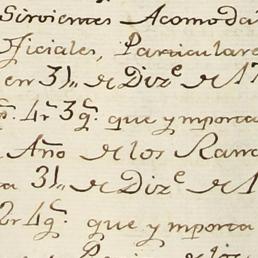 Sirvientes Acomoda
ficiales, Particulare
en 31,, de Diz.e de 17
4r 3q. que ymporta
Año de los Ram
31,, de Diz.e de 1
2r 4q. que ymporta
de los